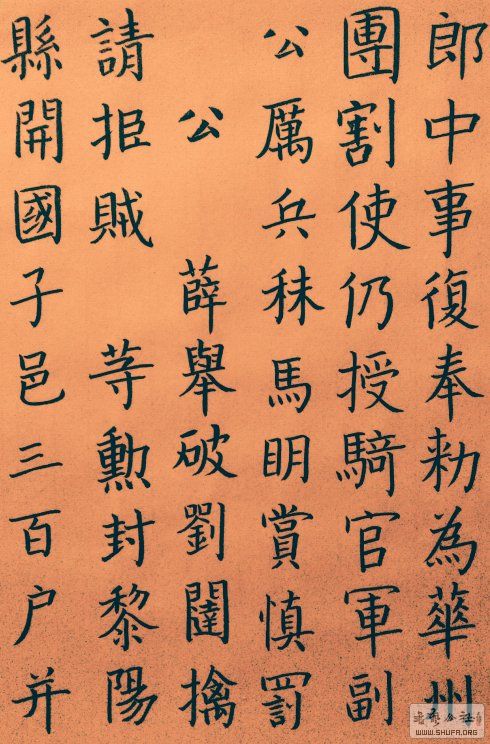 郎中事復奉勑為華州
團割使仍授騎官軍副
公厲兵秣馬眀賞慎罰
公 薛舉破劉闥擒
請拒賊 等勳封黎陽
縣開國子邑三百户并
WWW.SHUFA.ORG